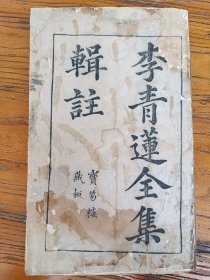 李青蓮全集
輯註
寶笏樓
藏板